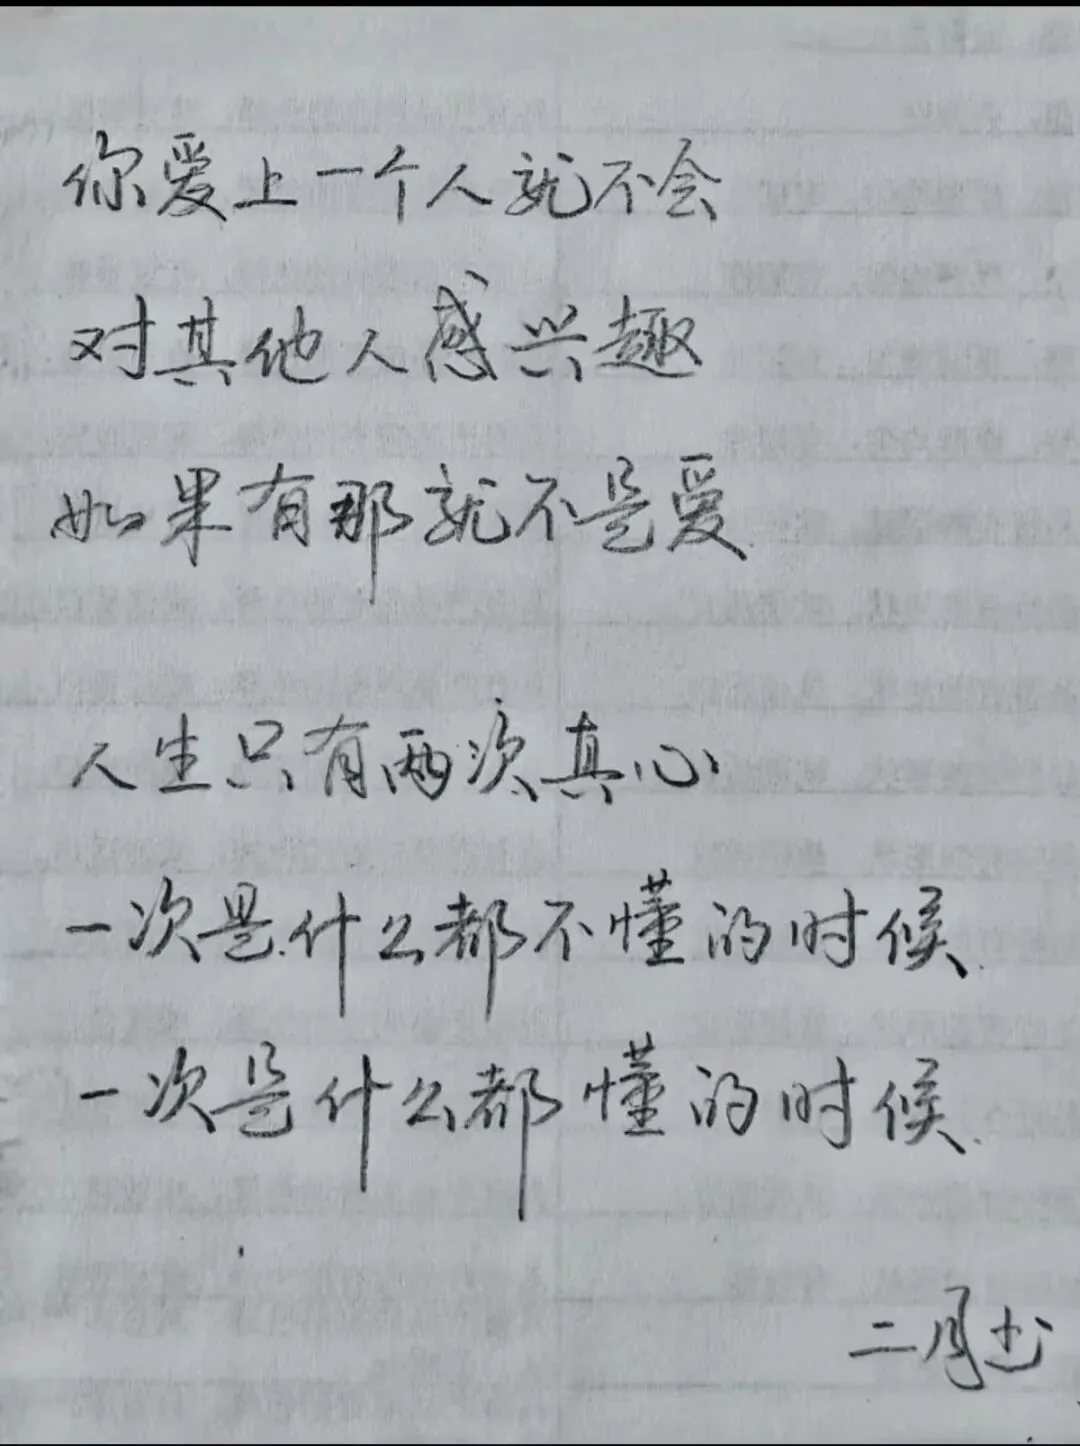 你爱上一个人就不会
对其他人感兴趣
如果有那就不是爱
人生只有两次真心
一次是什么都不懂的时候
一次是什么都懂的时候
二月